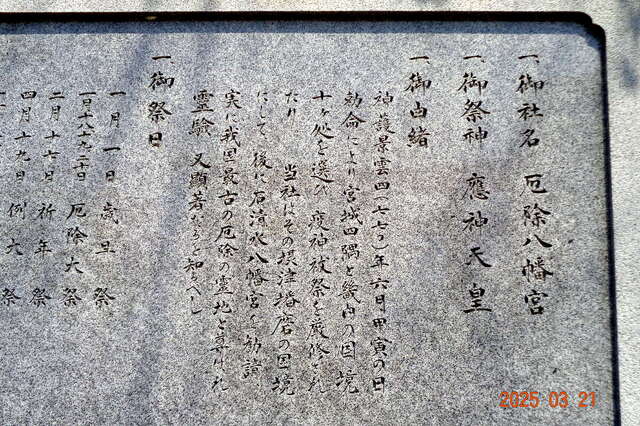 一、御社名 厄除八幡宮
一、御祭神 應神天皇
一、御由緒
神護景雲四(七七〇)年六月甲寅の日
勅命により宮城四隅と畿内の国境
十ヶ処を選び 疫神祓祭を厳修され
たり 当社はその摂津播磨の国境
にして 後に石清水八幡宮を勧請
実に我国最古の厄除の霊地と
霊験 又顕著なるを知るべし
一、御祭日
一月 一日 歳旦祭
一月十八、九、二十日 厄除大祭
二月十七日 祈年祭
四月十九日 例大祭
2025 03 21